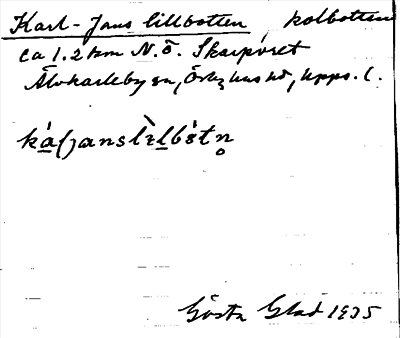 Karl-Jans lillbotten, kolbotten
ca 1.2 km N.Ö. Skarpöret
Älvkarleby sn, Örbyhus hd, Upps. l.
Gösta Glad 1935